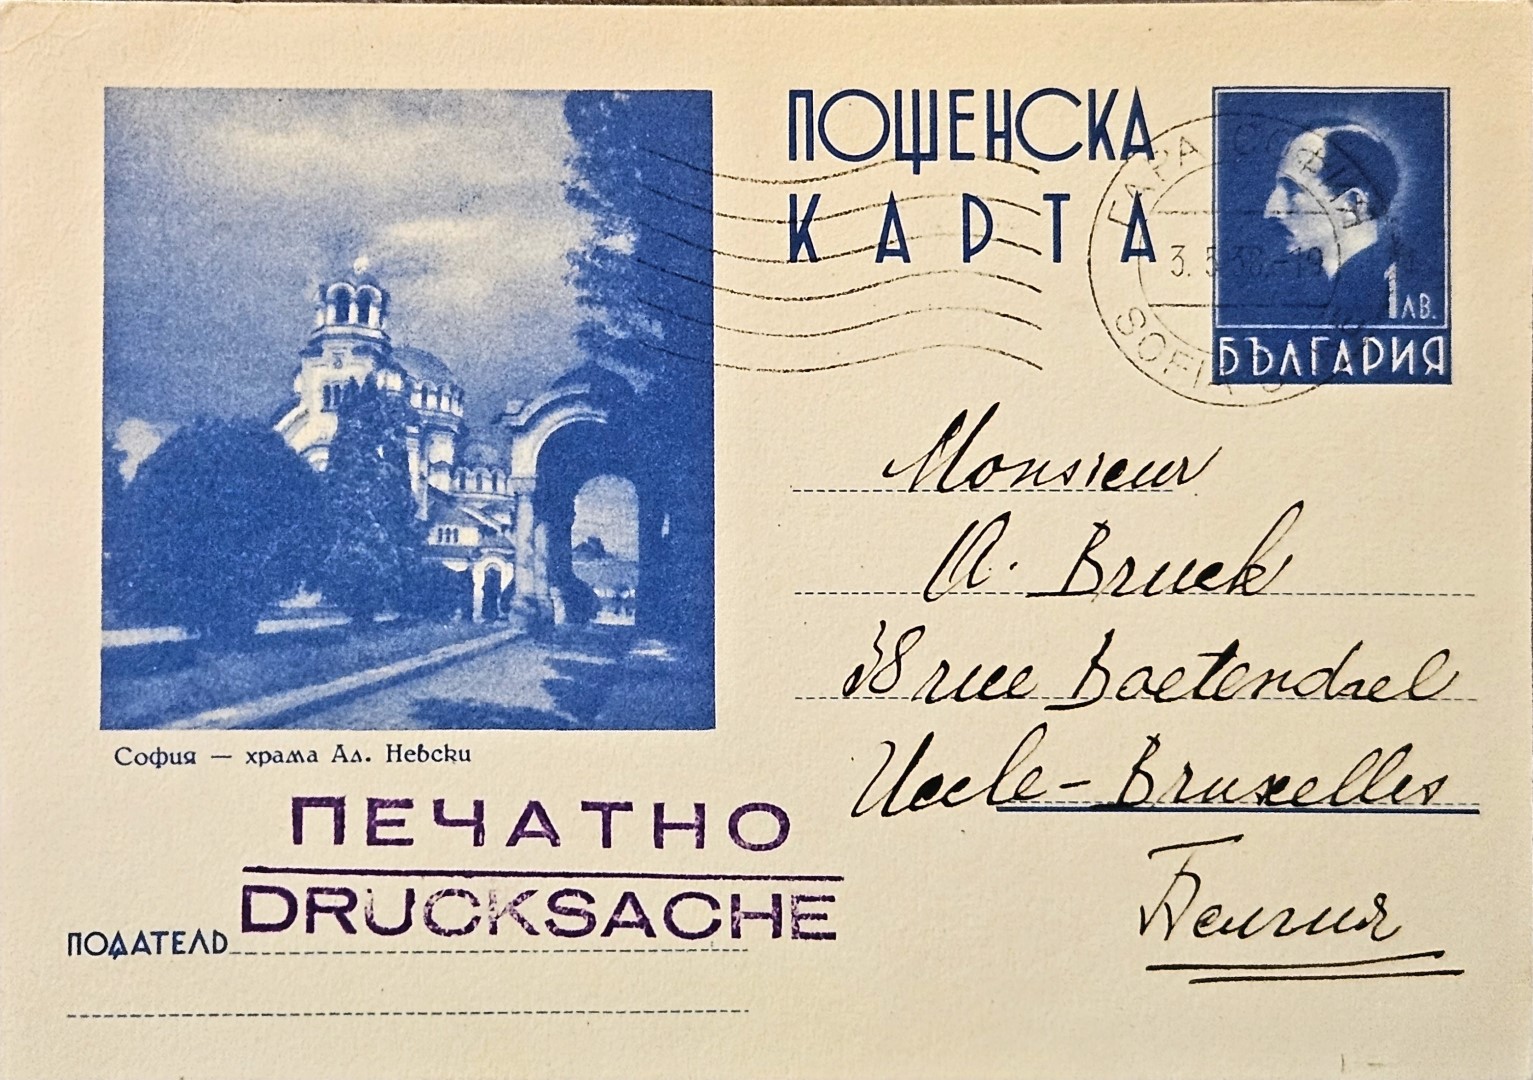 ПОЩЕНСКА
КАРТА
ГАРА СОФИЯ
3.5.38.-19
SOFIA
1 ЛВ.
БЪЛГАРИЯ
Monsieur
A. Bruck
38 rue Boetendael
Uccle - Bruxelles
Белгия
София — храма Ал. Невски
ПЕЧАТНО
DRUCKSACHE
ПОДАТЕЛЬ